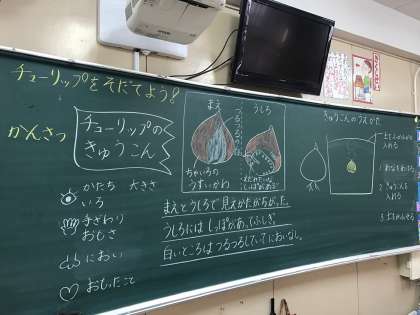 チューリップをそだてよう!
かんさつ
チューリップの
きゅうこん
かたち 大きさ
いろ
手ざわり
おもさ
におい
おもったこと
まえ
うしろ
ちゃいろの
うすいかわ
まえとうしろで見えかたがちがった。
うしろにはしっぽがあってふしぎ。
白いところはつるつるしていてにおいなし。
きゅうこんのうえかた
入れる